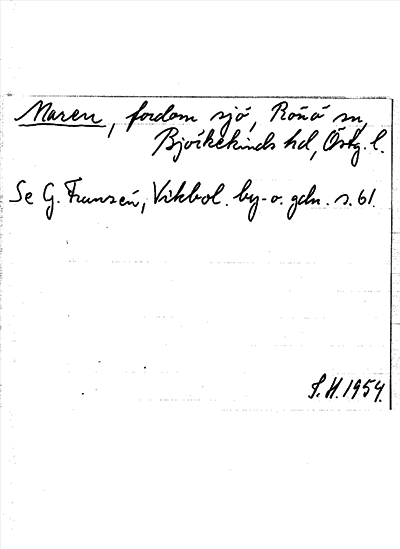 Maren, fordom sjö, Rönö sn,
Björkekinds hd, Östg. l.
Se G. Franzén, Vikbol. by- o. gdn. s. 61.
S. H. 1954.